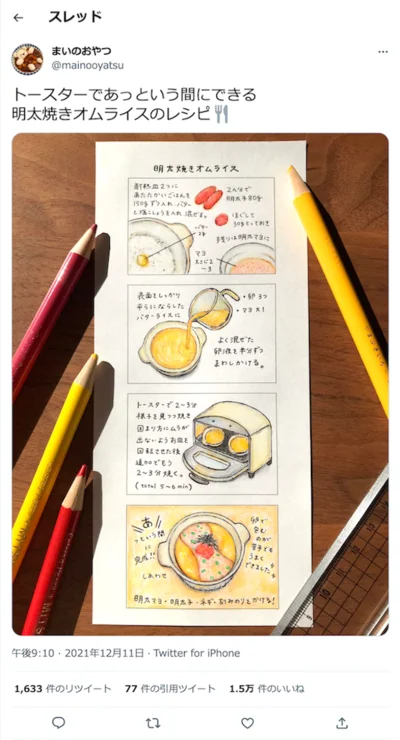 スレッド
まいのおやつ
@mainooyatsu
トースターであっという間にできる
明太焼きオムライスのレシピ🍴
明太焼きオムライス
耐熱皿2つに
あたたかいごはんを
150gずつ入れ、バター
と塩こしょうを入れ混ぜる。
バター
2人分で
明太子80g
ほぐして
30gとっておき
残りは明太マヨに
マヨ
大さじ2
〜3
表面をしっかり
平らにならした
バターライスに
・卵3つ
・マヨ大1
よく混ぜた
卵液を半分ずつ
まわしかける。
トースターで2〜3分
様子を見つつ焼き
固まり方にムラが
出ないようお皿を
回転させた後
追加でもう
2〜3分焼く。
(total 5〜6min)
あ
っという間
に
完成!!
しあわせ
卵で
包む
のが
苦手でも
うまく
できました
明太マヨ・明太子・ネギ・刻みのりをかける!
午後9:10 · 2021年12月11日 · Twitter for iPhone
1,633 件のリツイート 77 件の引用ツイート 1.5万 件のいいね